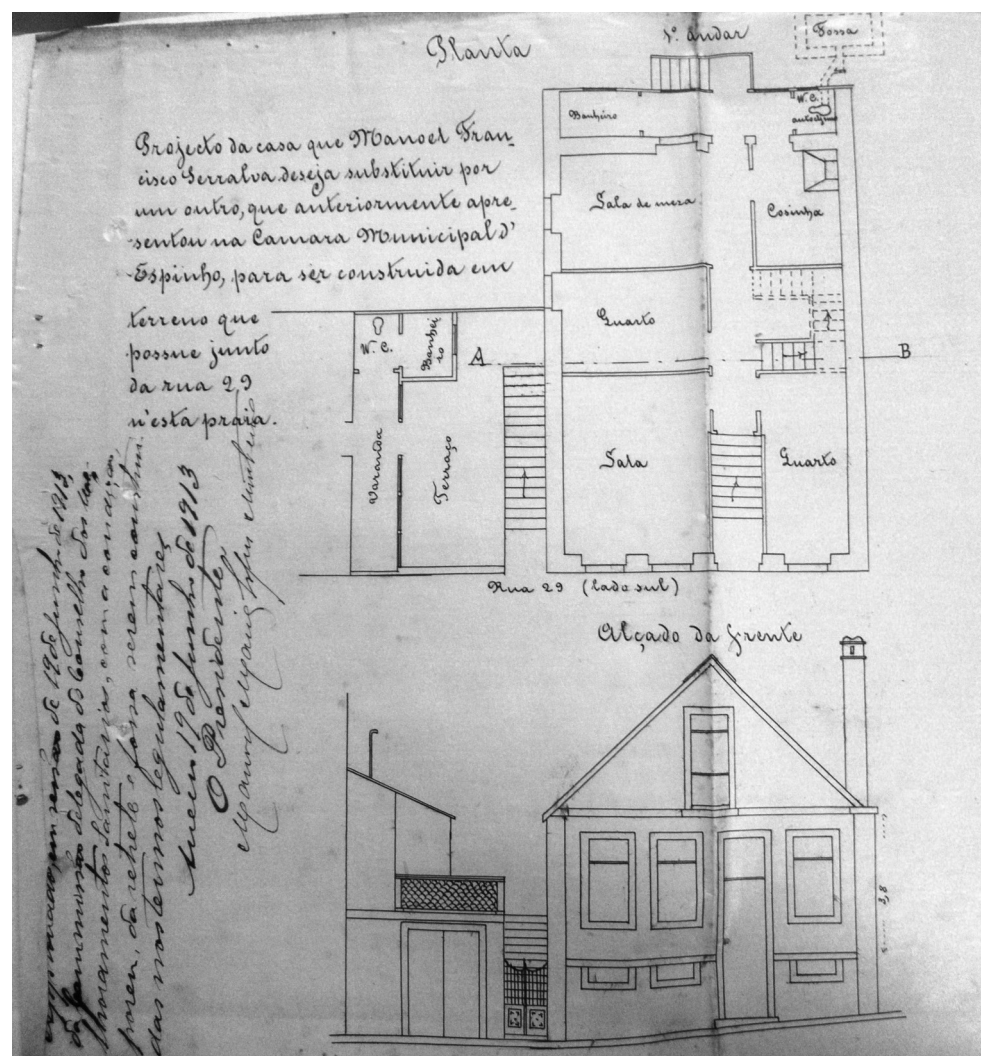 Planta
1º. andar
Fossa
W. C.
Banheiro
Projecto da casa que Manoel Fran-
cisco Serralva deseja substituir por
um outro, que anteriormente apre-
sentou na Camara Municipal d'
Espinho, para ser construida em
terreno que
possue junto
da rua 29
n'esta praia.
Sala de mesa
Cosinha
Quarto
W. C.
Banhei
ro
A
B
Varanda
Terraço
Sala
Quarto
Rua 29 (lado sul)
Alçado da frente
3,8
em sessão de 19 de Junho de 1913,
da Commissão delegada do Conselho dos
lhoramentos Sanitarios, com a condição,
porem, da retrete e fossa serem
das nos termos regulamentares
19 de Junho de 1913
O Presidente,